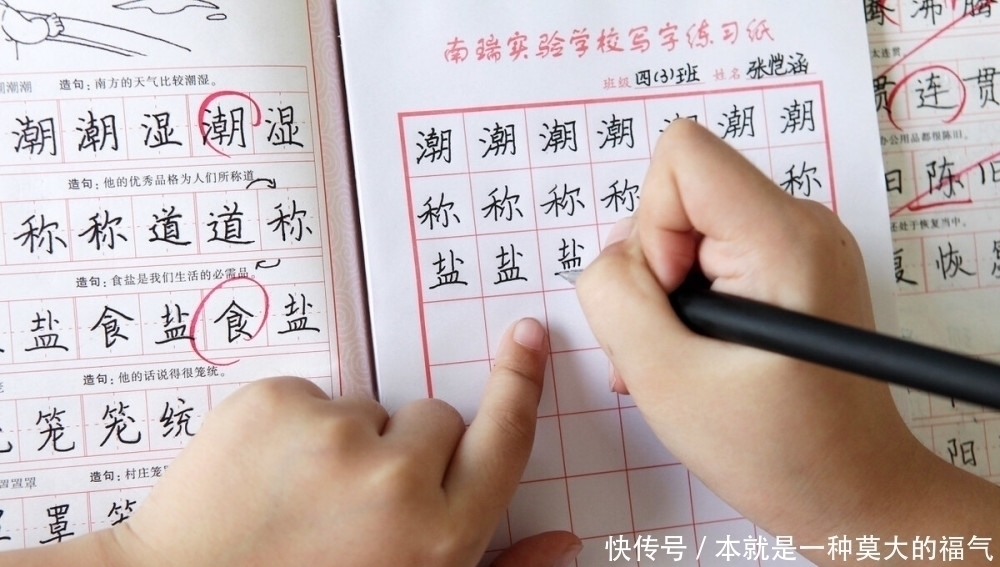 潮潮 造句：南方的天气比较潮湿。
潮 潮 湿 潮 湿
造句：他的优秀品格为人们所称道。
称 称 道 道 称
造句：食盐是我们生活的必需品。
盐 食 盐 食 盐
造句：他的话说得很笼统。
笼 笼 统
造句：村庄笼
罩
南瑞实验学校写字练习纸
班级 四(3)班 姓名 张恺涵
潮 潮 潮 潮 潮 潮
称 称 称 称 称
盐 盐 盐
沸 腾
连贯
贯 连 贯
办公用品都很陈旧。
旧 陈 旧
处于恢复当中。
复 恢
阳
快传号／本就是一种莫大的福气